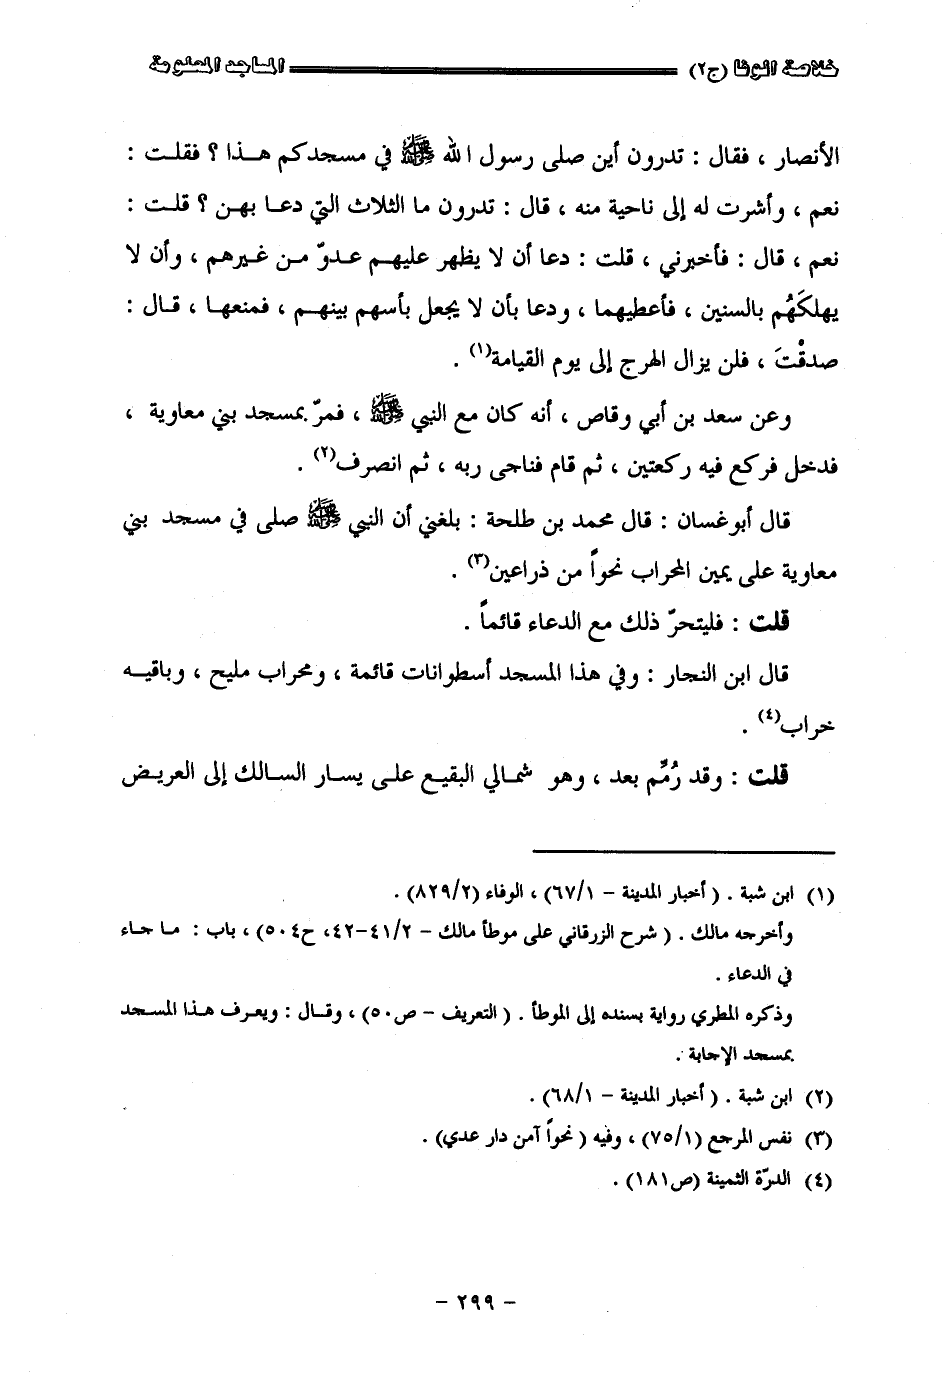 خلاصة الوفا (ج٢) المساجد المعلومة
الأنصار ، فقال : تدرون أين صلى رسول الله ﷺ في مسجدكم هـذا ؟ فقلـت :
نعم ، وأشرت له إلى ناحية منه ، قال : تدرون ما الثلاث التي دعـا بهـن ؟ قلـت :
نعم ، قال : فأخبرني ، قلت : دعا أن لا يظهر عليهـم عـدوّ مـن غـيرهم ، وأن لا
يهلكَهُم بالسنين ، فأعطيهما ، ودعا بأن لا يجعل بأسهم بينهـم ، فمنعهـا ، قـال :
صدقْتَ ، فلن يزال الهرج إلى يوم القيامة(١) .
وعن سعد بن أبي وقاص ، أنه كان مع النبي ﷺ ، فمرّ بمسجد بني معاوية ،
فدخل فركع فيه ركعتين ، ثم قام فناجى ربه ، ثم انصرف(٢) .
قال أبوغسان : قال محمد بن طلحة : بلغني أن النبي ﷺ صلى في مسجد بني
معاوية على يمين المحراب نحواً من ذراعين(٣) .
قلت : فليتحرّ ذلك مع الدعاء قائماً .
قال ابن النجار : وفي هذا المسجد أسطوانات قائمة ، ومحراب مليح ، وباقيـه
خراب(٤) .
قلت : وقد رُمِّم بعد ، وهو شمالي البقيع على يسار السالك إلى العريض
(١) ابن شبة . ( أخبار المدينة – ٦٧/١) ، الوفاء (٨٢٩/٢) .
وأخرجه مالك . ( شرح الزرقاني على موطأ مالك – ٤١/٢-٤٢، ح٥٠٤) ، باب : مـا جـاء
في الدعاء .
وذكره المطري رواية بسنده إلى الموطأ . ( التعريف – ص٥٠) ، وقـال : ويعـرف هـذا المسـجد
بمسجد الإجابة .
(٢) ابن شبة . ( أخبار المدينة – ٦٨/١) .
(٣) نفس المرجع (٧٥/١) ، وفيه ( نحواً آمن دار عدي) .
(٤) الدرّة الثمينة (ص١٨١) .
– ٢٩٩ –